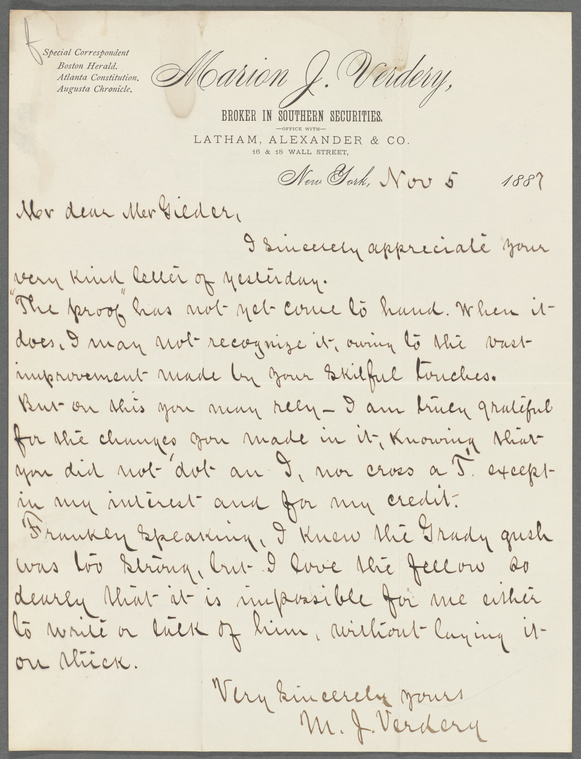 Special Correspondent
Boston Herald.
Atlanta Constitution.
Augusta Chronicle.
Marion J. Verdery,
BROKER IN SOUTHERN SECURITIES.
—OFFICE WITH—
LATHAM, ALEXANDER & CO.
16 & 18 WALL STREET,
New York, Nov 5 1887
My dear Mr Gilder,
I sincerely appreciate your
very kind letter of yesterday.
"The proof" has not yet come to hand. When it
does, I may not recognize it, owing to the vast
improvement made by your skilful touches.
But on this you may rely — I am truly grateful
for the changes you made in it, knowing that
you did not 'dot an I, nor cross a T.' except
in my interest and for my credit.
Frankly speaking, I knew the Grady gush
was too strong, but I love the fellow so
dearly that it is impossible for me either
to write or talk of him, without laying it
on thick.
Very sincerely yours
M. J. Verdery